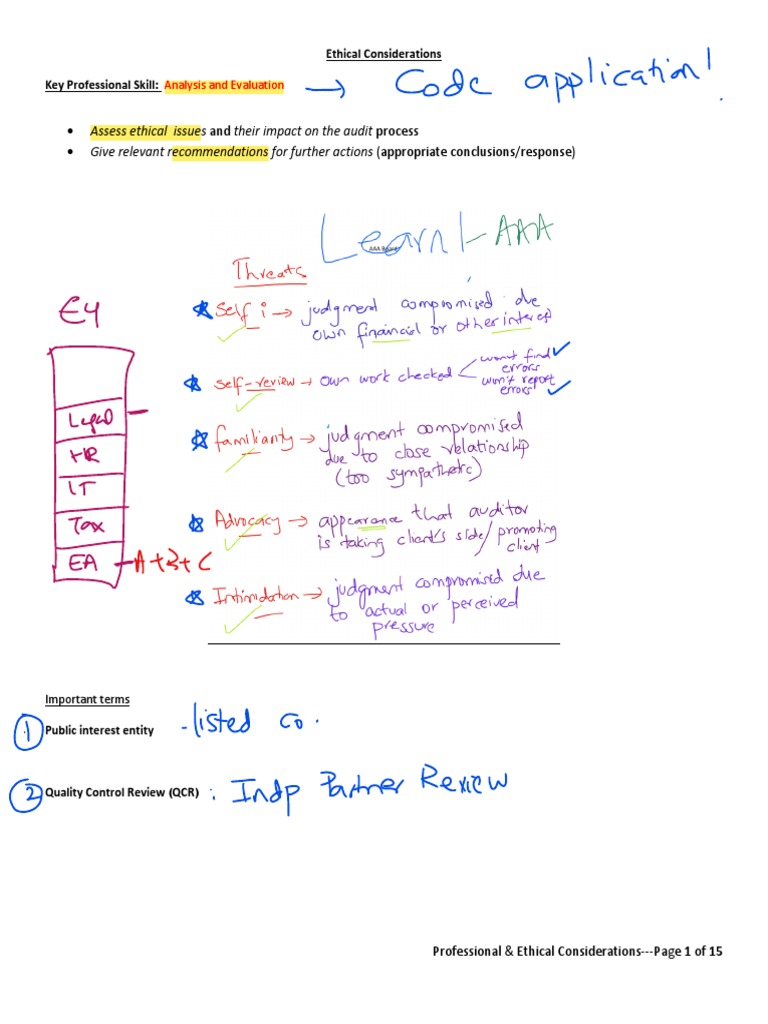 Ethical Considerations
Key Professional Skill: Analysis and Evaluation → Code application!
• Assess ethical issues and their impact on the audit process
• Give relevant recommendations for further actions (appropriate conclusions/response)
Learn1-AAA
Threats
Self i → judgment compromised due
own financial or other interest
self-review → own work checked
won't find
errors
won't report
errors
familiarity → judgment compromised
due to close relationship
(too sympathetic)
Advocacy → appearance that auditor
is taking client's side/promoting
client
Intimidation → judgment compromised due
to actual or perceived
pressure
EY
HR
IT
Tax
EA - A + B + C
Important terms
1 Public interest entity - listed co.
2 Quality Control Review (QCR) : Indp Partner Review
Professional & Ethical Considerations---Page 1 of 15